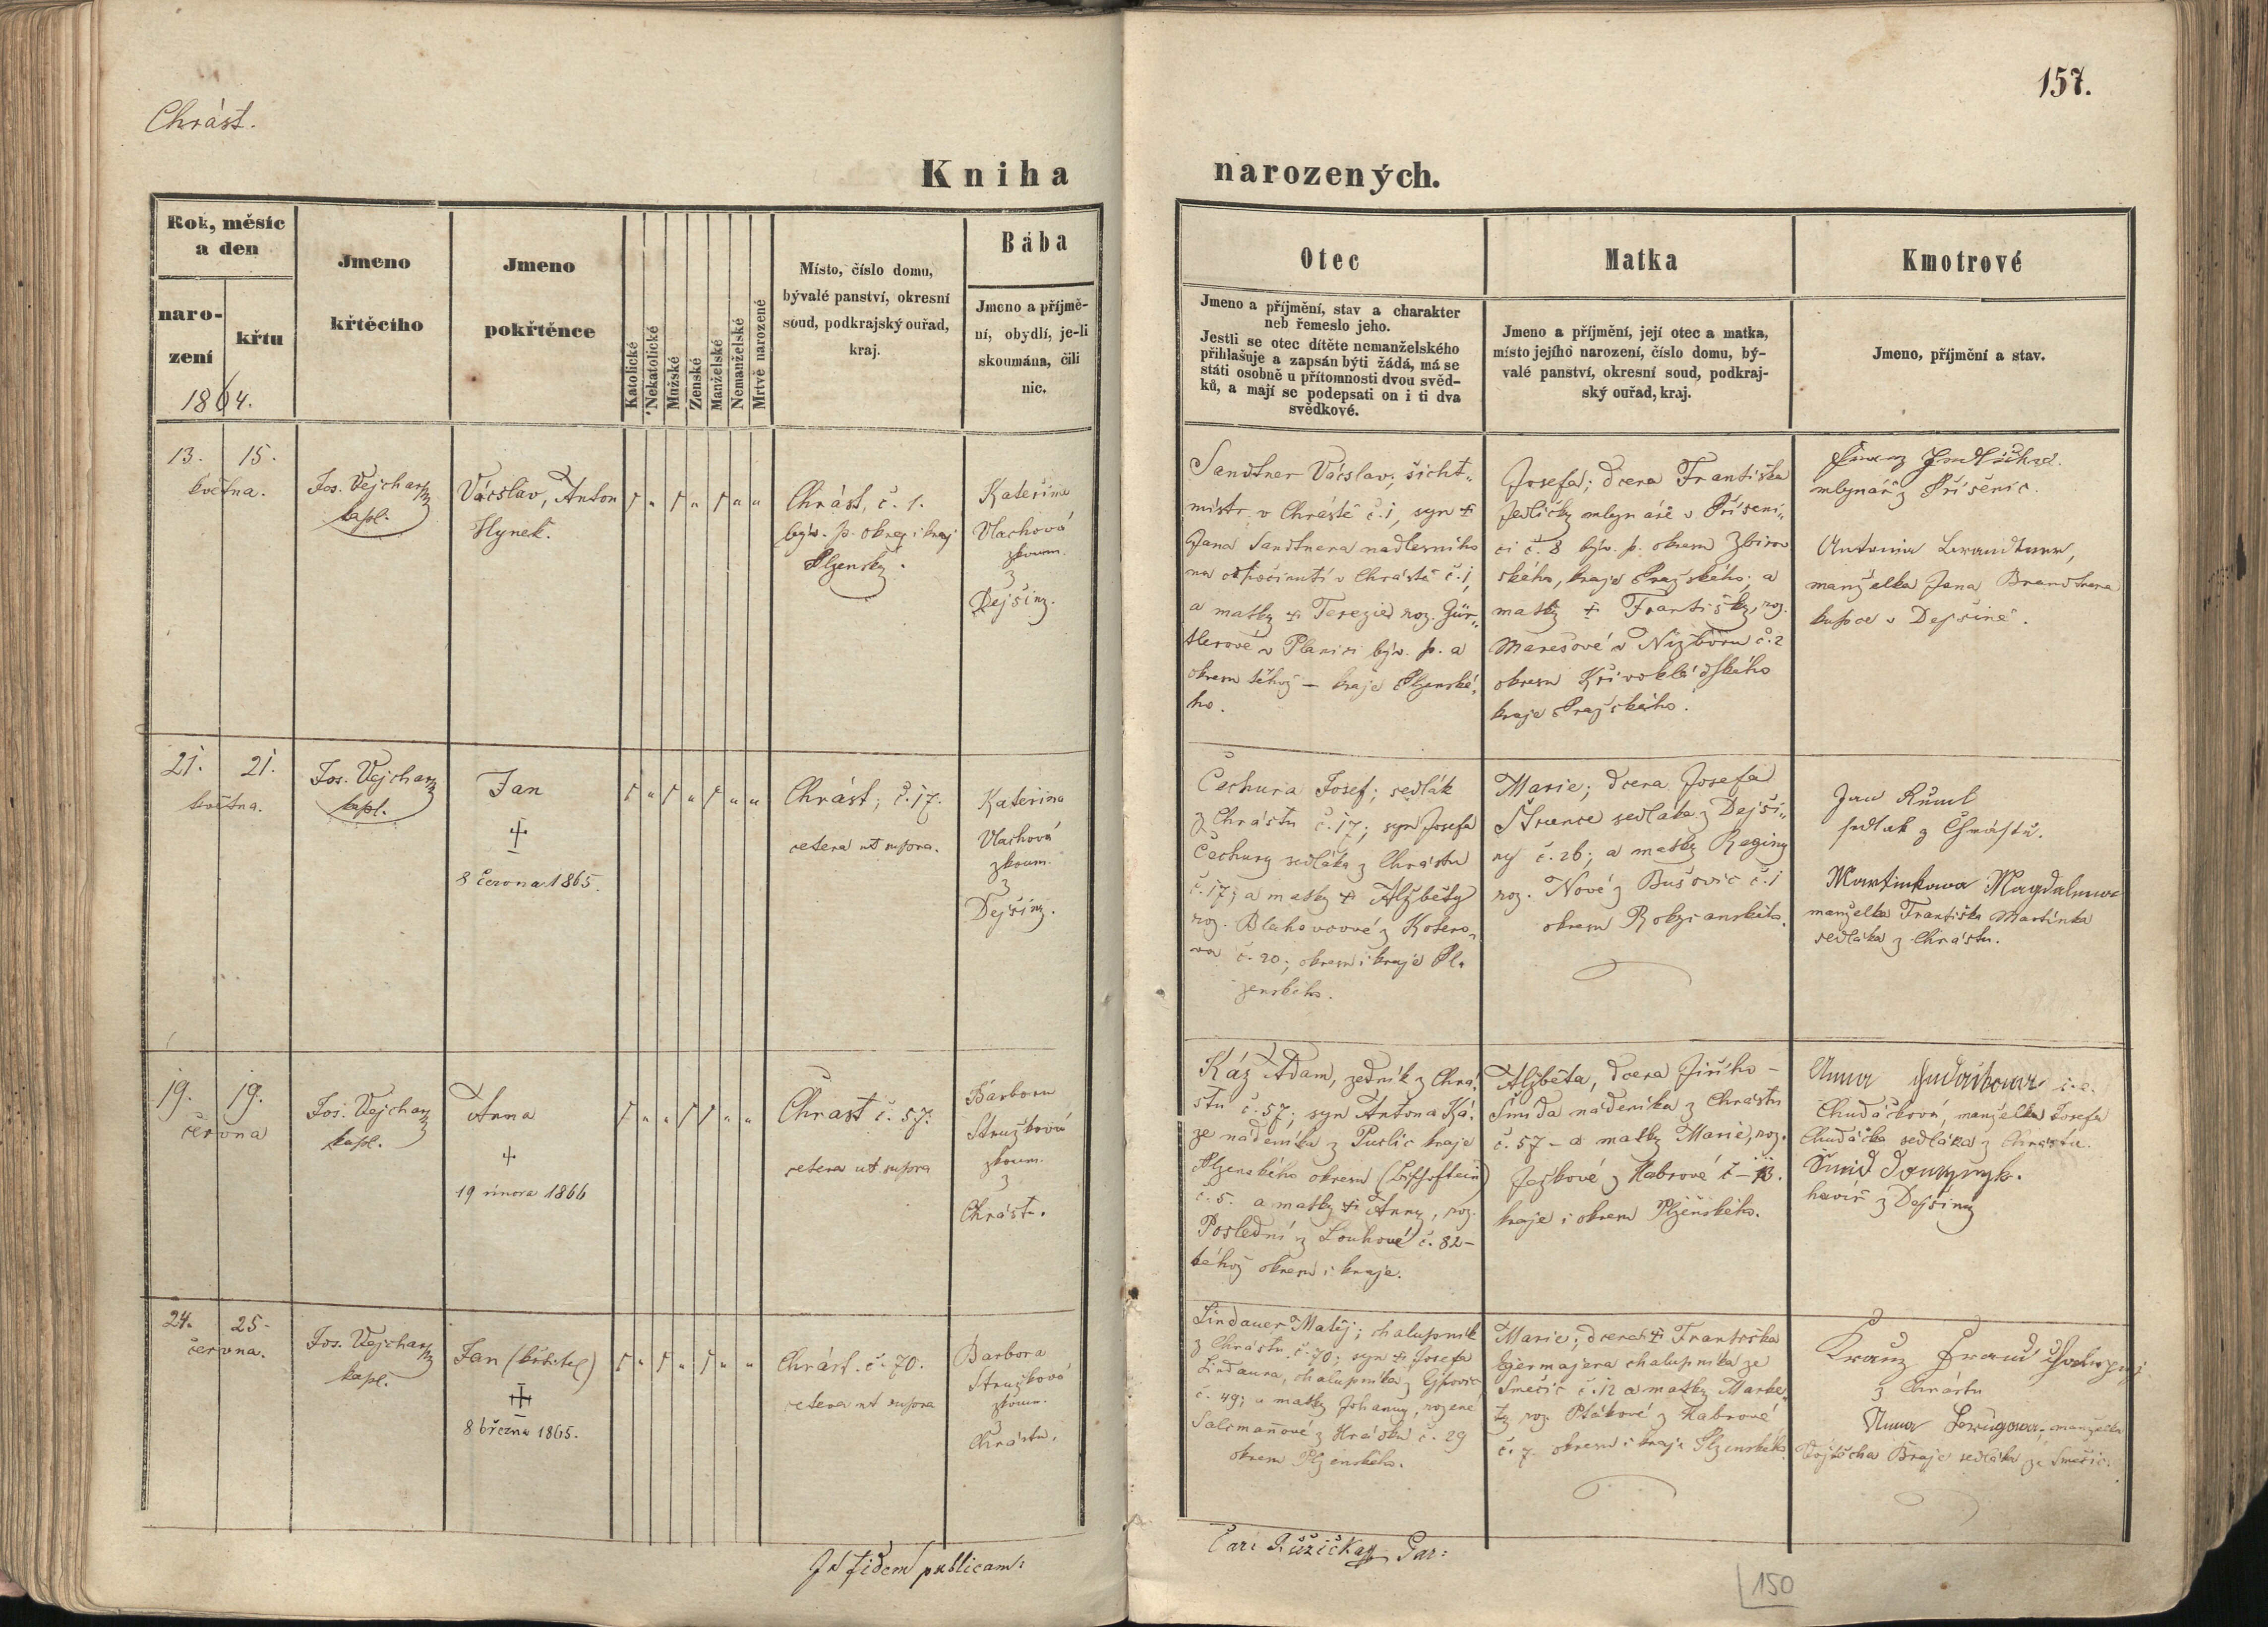 157.
Chrást.
Kniha narozených.
Rok, měsíc
a den
naro-
zení
křtu
1864.
Jmeno
křtěcího
Jmeno
pokřtěnce
Katolické
Nekatolické
Mužské
Ženské
Manželské
Nemanželské
Mrtvě narozené
Místo, číslo domu,
bývalé panství, okresní
soud, podkrajský ouřad,
kraj.
Bába
Jmeno a příjmě-
ní, obydlí, je-li
skoumána, čili
nic.
Otec
Jmeno a příjmění, stav a charakter
neb řemeslo jeho.
Jestli se otec dítěte nemanželského
přihlašuje a zapsán býti žádá, má se
státi osobně u přítomnosti dvou svěd-
ků, a mají se podepsati on i ti dva
svědkové.
Matka
Jmeno a příjmění, její otec a matka,
místo jejího narození, číslo domu, bý-
valé panství, okresní soud, podkraj-
ský ouřad, kraj.
Kmotrové
Jmeno, příjmění a stav.
13. 15.
května.
Jos. Vejchar
kapl.
Vácslav, Anton
Hynek.
Chrást, č. 1.
býv. p. okres i kraj
Plzenský.
Kateřina
Vlachová
zkoum.
z
Dejšiny.
Sandtner Vácslav, šicht„
mistr v Chrástě č. 1, syn +
Jana Sandtnera nadlesního
na odpočinutí v Chrástě č. 1,
a matky + Terezie roz. Gür„
tlerové v Planici býv. p. a
okresu téhož – kraje Plzenské„
ho.
Josefa; dcera Františka
Jedličky mlynáře v Příseni„
ci č. 8 býv. p. okresu Zbirov
ského, kraje Pražského; a
matky + Františky, roz.
Marešové v Nižboru č. 2
okresu Křivokládského
kraje Pražského.
mlynář z Přísěnic.
Antonia
manželka Jana Brandtnera
kupce v Dejšině.
21. 21.
května.
Jos. Vejchar
kapl.
Jan
+
8 června 1865.
Chrást; č. 17.
cetera ut supra.
Kateřina
Vlachová
zkoum.
z
Dejšiny.
Čechura Josef; sedlák
z Chrástu č. 17; syn Josefa
Čechury sedláka z Chrástu
č. 17; a matky + Alžběty
roz. Blahovcové z Kotero„
va č. 20; okresu i kraje Pl„
zenského.
Marie; dcera Josefa
Štrunce sedláka z Dejši„
ny č. 26; a matky Reginy
roz. Nové z Bušovic č. 1
okresu Rokycanského.
Jan Ruml
sedlak z Chrástu.
Martinkowa Magdalena
manželka Františka Martínka
sedláka z Chrástu.
19. 19.
června
Jos. Vejchar
kapl.
Anna
+
19 února 1866
Chrast č. 57.
cetera ut supra
Barbora
Stružková
zkoum.
z
Chrástu.
Káz Adam, zedník z Chrá„
stu č. 57; syn Antona Ká„
ze nádeníka z Puclic kraje
Plzenského okresu (Bischoftein)
č. 5. a matky + Anny, roz.
Poslední z Louhové č. 82 –
téhož okresu i kraje.
Alžběta, dcera Jiřího –
Šmída nádeníka z Chrástu
č. 57 – a matky Marie, roz.
Ježkové z Habrové č – 13.
kraje i okresu Plzenského.
Anna i. e.
Chudáčková, manželka Josefa
Chudáčka sedláka z Chrástu.
Šmíd
havíř z Dejšiny
24. 25.
června.
Jos. Vejchar
kapl.
Jan (křtitel)
+
8 března 1865.
Chrást. č. 70.
cetera ut supra
Barbora
Stružková
zkoum.
z
Chrástu.
Lindauer Matěj; chalupník
z Chrástu, č. 70; syn + Josefa
Lindaura, chalupníka z Ejpovic
č. 49; a matky Johanny, rozené
Salcmanové z Hrádku č. 29
okresu Plzenského.
Marie; dcera + Františka
chalupníka ze
Smědčic č. 12 a matky Marke„
ty roz. Ptákové z Habrové
č. 7. okresu i kraje Plzenského.
Kranz
z Chrástu
Anna manželka
Vojtěcha Braje sedláka ze Smědčic.
In fidem publicam:
Car: Růžička Par:
150